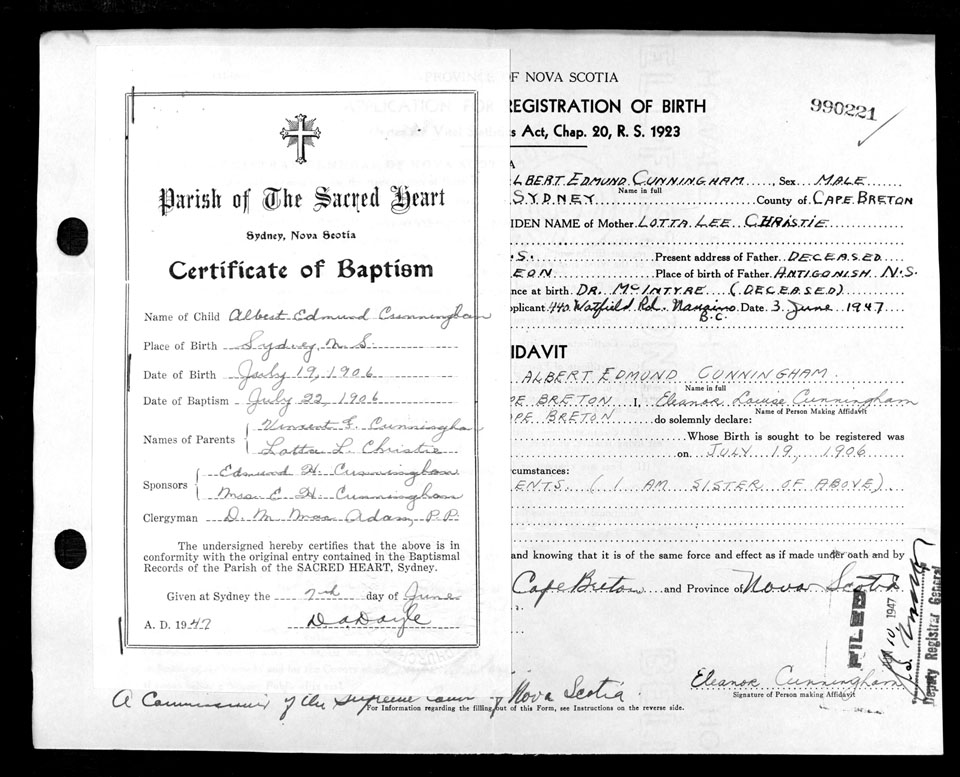 Parish of The Sacred Heart
Sydney, Nova Scotia
Certificate of Baptism
Name of Child Albert Edmund Cunningham
Place of Birth Sydney N. S.
Date of Birth July 19, 1906
Date of Baptism July 22, 1906
Names of Parents Vincent F. Cunningham
Lotta L. Christie
Sponsors Edmund H. Cunningham
Mrs. E. H. Cunningham
Clergyman D. M. MacAdam, P.P.
The undersigned hereby certifies that the above is in
conformity with the original entry contained in the Baptismal
Records of the Parish of the SACRED HEART, Sydney.
Given at Sydney the 2nd day of June
A. D. 1947
OF NOVA SCOTIA
REGISTRATION OF BIRTH
990221
s Act, Chap. 20, R. S. 1923
LBERT EDMUND CUNNINGHAM, Sex MALE
Name in full
SYDNEY County of CAPE BRETON
IDEN NAME of Mother LOTTA LEE CHRISTIE
.S. Present address of Father DECEASED
EON Place of birth of Father ANTIGONISH N.S.
nce at birth DR. McINTYRE (DECEASED)
pplicant 440 Rd. Nanaimo B.C. Date 3 June 1947
IDAVIT
ALBERT EDMUND CUNNINGHAM
Name in full
PE BRETON I, Eleanor Louise Cunningham
Name of Person Making Affidavit
PE BRETON do solemnly declare:
Whose Birth is sought to be registered was
on JULY 19, 1906
rcumstances:
ENTS (I AM SISTER OF ABOVE)
and knowing that it is of the same force and effect as if made under oath and by
Cape Breton and Province of Nova Scotia
FILED
10 1947
Deputy Registrar General
Eleanor Cunningham
Signature of Person making Affidavit
A Commissioner of the Supreme Court of Nova Scotia
For Information regarding the filling out of this Form, see Instructions on the reverse side.